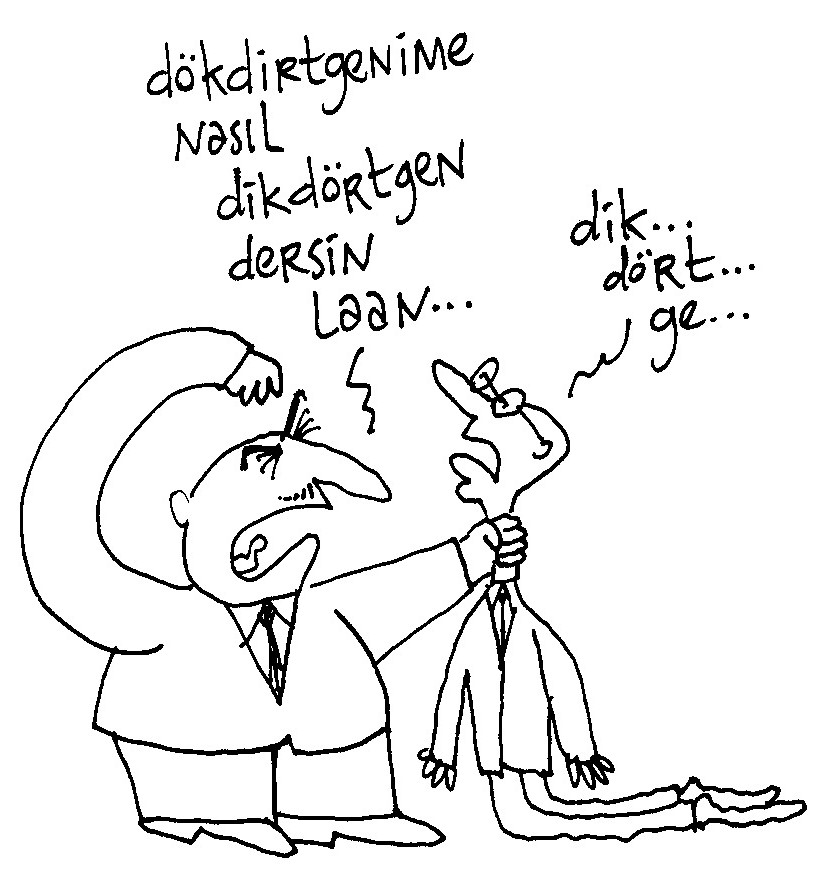 dökdirtgenime
nasıl
dikdörtgen
dersin
laan...
dik...
dört...
ge...